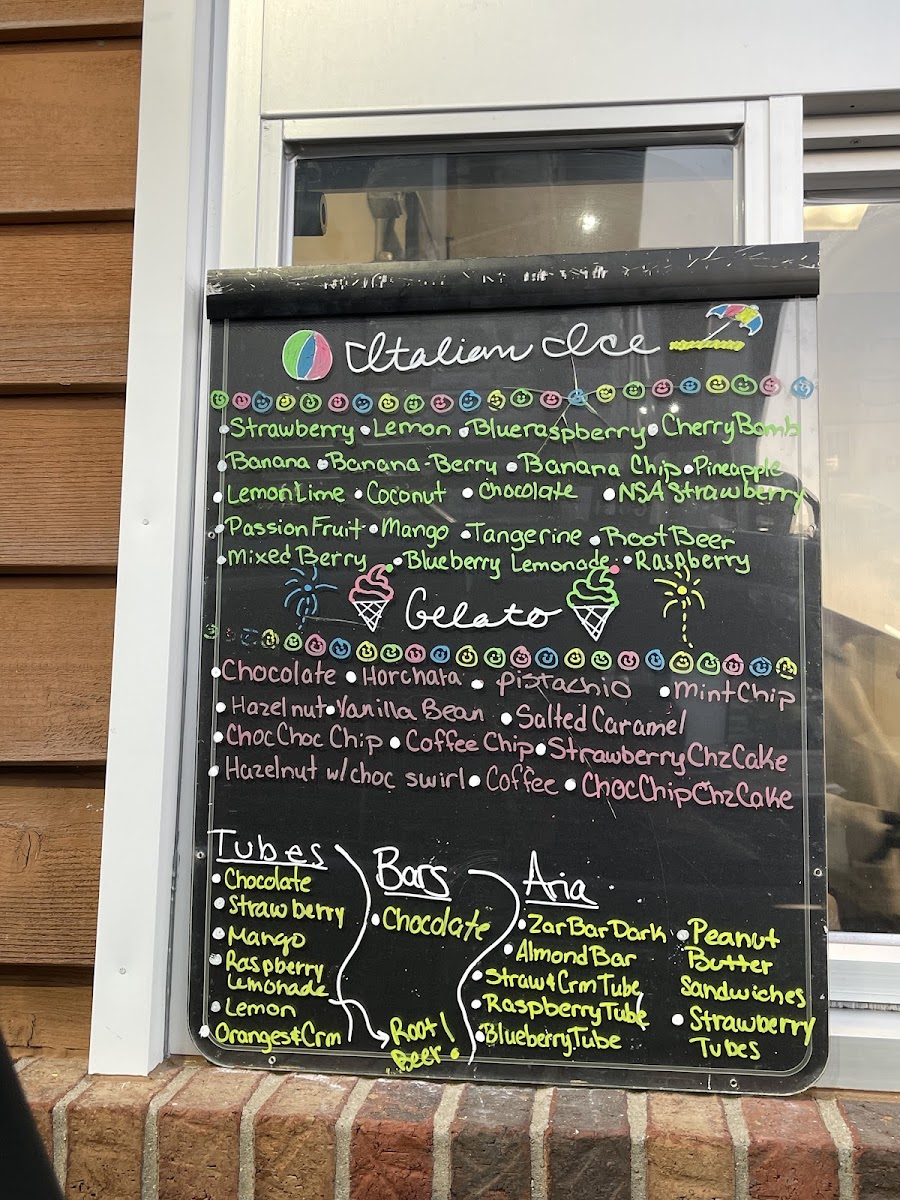 Italian Ice
• Strawberry • Lemon • Blueraspberry • Cherry Bomb
• Banana • Banana-Berry • Banana Chip • Pineapple
• Lemon Lime • Coconut • Chocolate • NSA Strawberry
• Passion Fruit • Mango • Tangerine • Root Beer
• Mixed Berry • Blueberry Lemonade • Raspberry
Gelato
• Chocolate • Horchata • Pistachio • Mint Chip
• Hazelnut • Vanilla Bean • Salted Caramel
• Choc Choc Chip • Coffee Chip • Strawberry Chz Cake
• Hazelnut w/choc swirl • Coffee • Choc Chip Chz Cake
Tubes
• Chocolate
• Strawberry
• Mango
• Raspberry
Lemonade
• Lemon
• Oranges&Crm
Root!
Beer!
Bars
• Chocolate
Aria
• Zar Bar Dark
• Almond Bar
• Straw&Crm Tube
• Raspberry Tube
• Blueberry Tube
• Peanut
Butter
Sandwiches
• Strawberry
Tubes